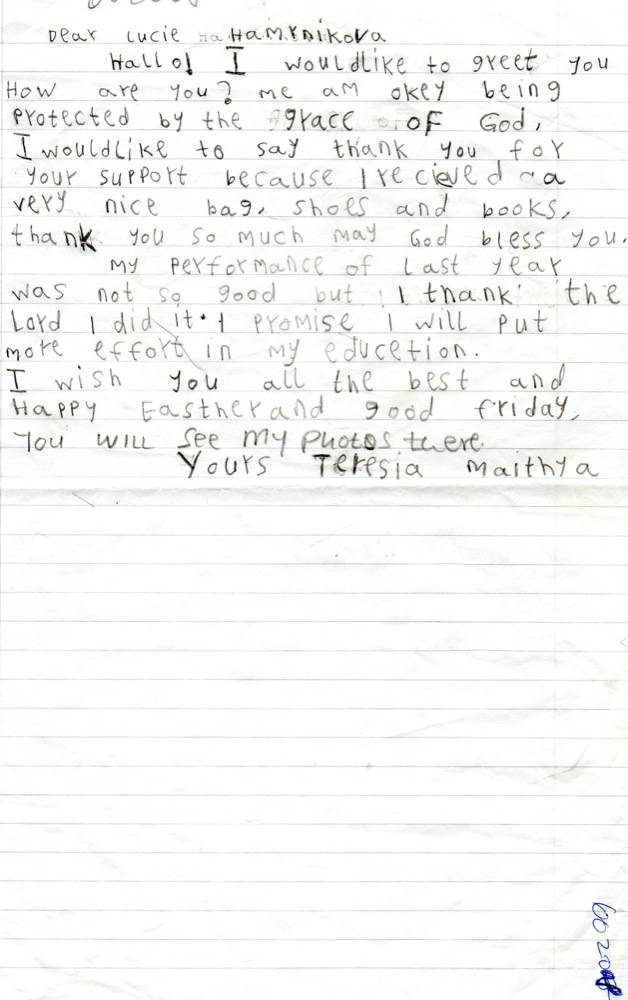 Dear Lucie Hamrnikova
Hallo! I wouldlike to greet you
How are you? me am okey being
protected by the grace of God,
I wouldlike to say thank you for
your support because I recieved a
very nice bag, shoes and books,
thank you so much may God bless you.
My performance of last year
was not so good but I thank the
Lord I did it. I promise I will put
more effort in my educetion.
I wish you all the best and
Happy Easther and good friday,
You will see my photos there.
Yours Teresia Maithya